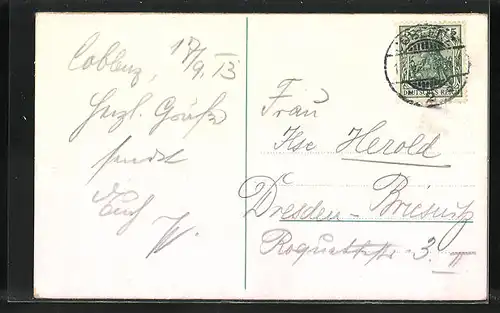 Coblenz, 17/9. 13
Herzl. Grüße
sendet
Euch
W.
Frau
Ilse Herold
Dresden-Briesnitz
Roquettestr. 3. II
DEUTSCHES REICH